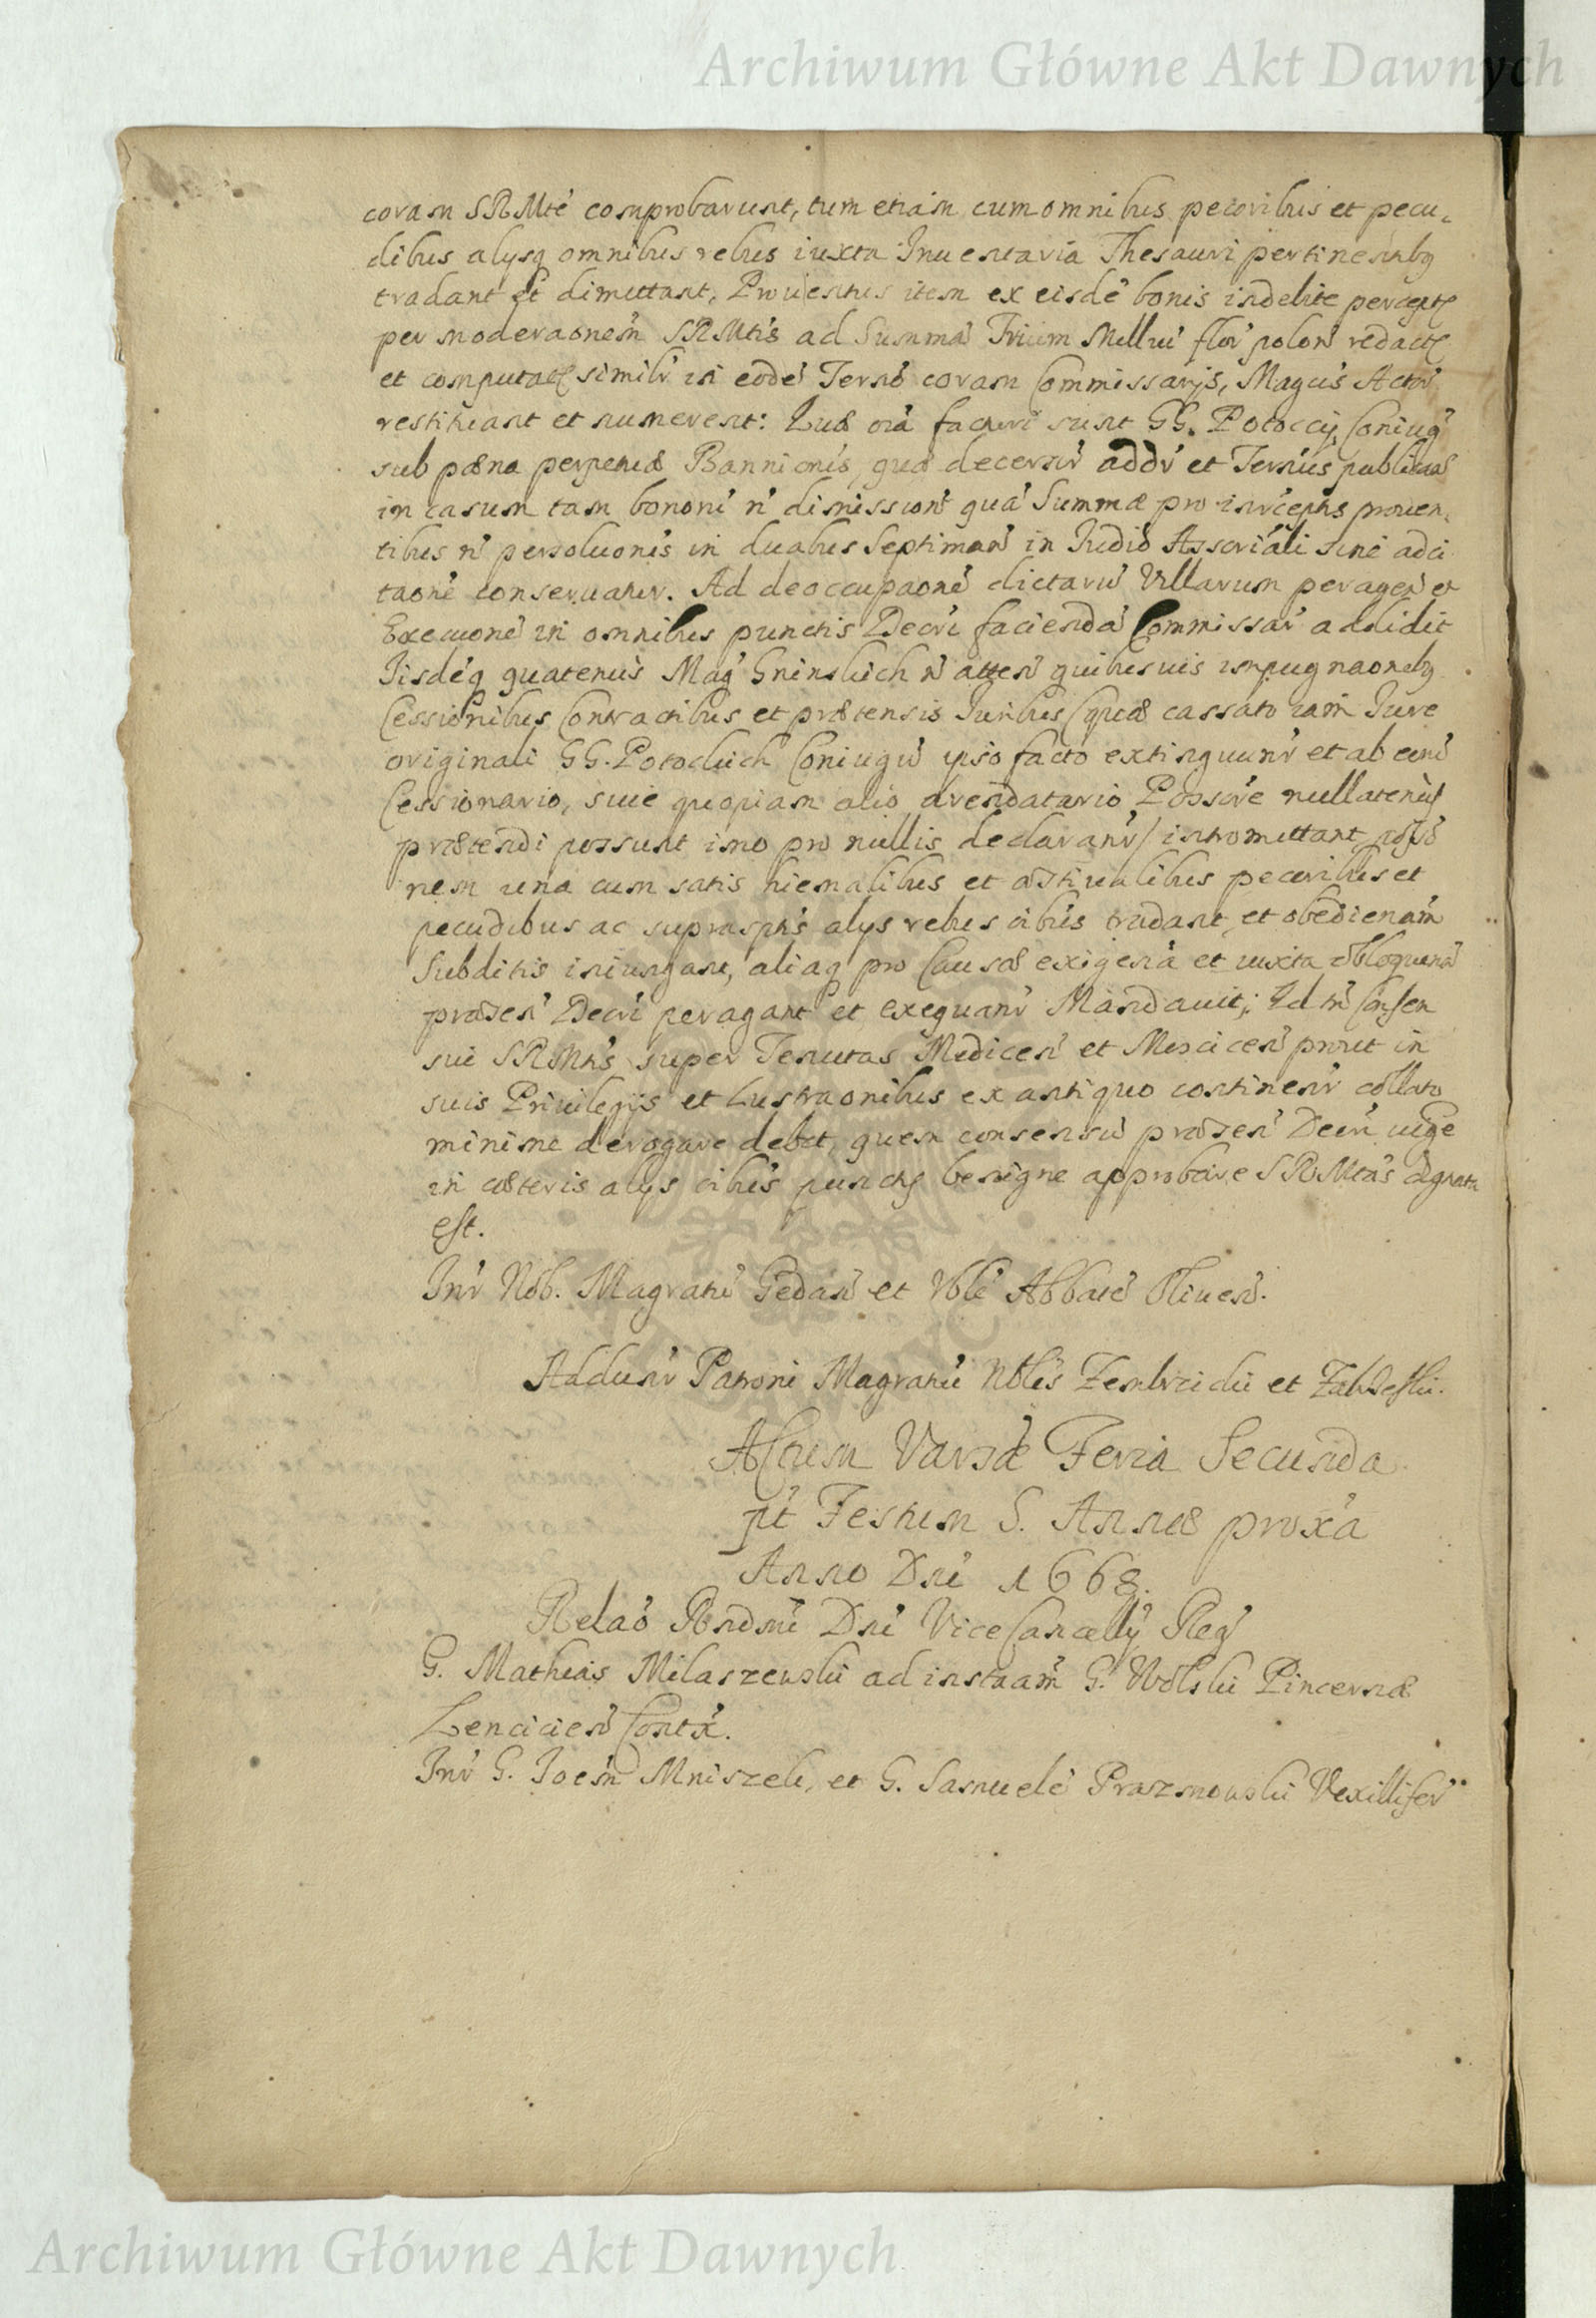 Archiwum Główne Akt Dawnych
coram SRMte comprobarunt, tum etiam cum omnibus pecoribus et pecu-
dibus alysq omnibus rebus iuxta Inuentaria Thesauri pertinentibq
tradant et dimittant, Prouentus item ex eisde bonis indebite percept
per moderaonem SRMtis ad Summa Trium Milliu flor polon redact
et computat similr in eode Termo coram Commissarijs, Magcis Actor
restituant et numerent: Quæ oia facturi sunt GG. Potoccy Coniug
sub pœna perpetuæ Bannionis, quæ decernr addr et Termus publicaæ
in casum tam bonori n dimissioni qua Summæ pro inrceptis prouen-
tibus n persoluonis in duabus Septiman in Judio Assoriali sine adci
taone conseruatur. Ad deoccupaone dictaru Villarum peragen et
Execuone in omnibus punctis Decri facienda Commissar addidit
Iisdeq quatenus Mag Gninskich n atten quibusuis impugnaonebq
Cessionibus Contractibus et prætensis Juribus (quæ cassato iam Jure
originali GG. Potockich Coniugu ipso facto extinguunr et ab eoru
Cessionario, siue quopiam alio arendatario Possore nullatenus
prætendi possunt imo pro nullis declaranr) intromittant,
nem una cum satis hiemalibus et æstiualibus pecoribus et
pecudibus ac suprasptis alys rebus oibus tradant, et obedienam
Subditis iniungant, aliaq pro Causæ exigena et iuxta obloquena
præsen Decri peragant et exequanr Mandauit; Id tn Consen
sui SRMtis super Tenutas Medicen et Mescicen prout in
suis Priuilegijs et Lustraonibus ex antiquo continenr collato
minime derogare debet, quem consensu præsen Decri uige
in cæteris alys oibus punctis benigne approbare SRMtas dignata
est.
Inr Nob. Magratu Gedan et Vble Abbate Oliuen.
Addunr Patroni Magratui Nbles Zembrzicki et Zablesky.
Actum Varsæ Feria Secunda
pt Festum S. Annæ proxa
Anno Dni 1668.
Relao Rndmi Dni Vice Cancelly Reg
G. Mathias Milaszewski ad instaam G. Wolski Pincernæ
Lencicien Contx.
Inr G. Joem Mniszek, et G. Samuele Prazmowski Vexillifer
Archiwum Główne Akt Dawnych